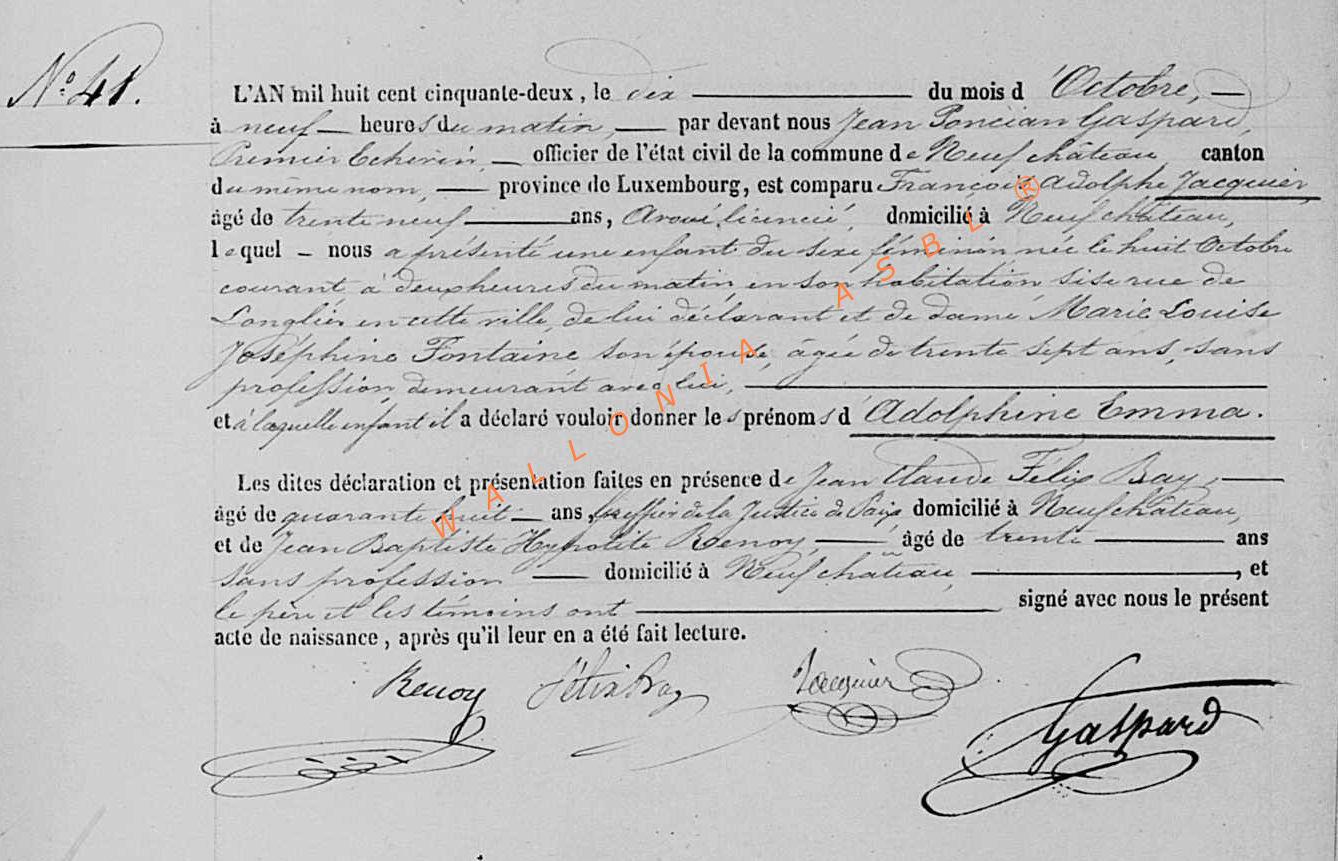 No. 41.
L'AN mil huit cent cinquante-deux, le dix du mois d'Octobre,
à neuf heures du matin, par devant nous Jean Poncian Gaspard,
Premier Echevin, officier de l'état civil de la commune de Neufchâteau, canton
du même nom, province de Luxembourg, est comparu François Adolphe Jacquier,
âgé de trente neuf ans, Avoué licencié, domicilié à Neufchâteau,
lequel nous a présenté une enfant du sexe féminin née le huit Octobre
courant à deux heures du matin, en son habitation sise rue de
Longlier en cette ville, de lui déclarant et de dame Marie Louise
Joséphine Fontaine son épouse, âgée de trente sept ans, sans
profession, demeurant avec lui,
et à laquelle enfant il a déclaré vouloir donner les prénoms d'Adolphine Emma.
Les dites déclaration et présentation faites en présence de Jean Claude Félix Bay,
âgé de quarante huit ans, Greffier de la Justice de Paix domicilié à Neufchâteau,
et de Jean Baptiste Hypolite Renoy, âgé de trente ans
sans profession domicilié à Neufchâteau, et
le père et les témoins ont signé avec nous le présent
acte de naissance, après qu'il leur en a été fait lecture.
Renoy Félix Bay Jacquier
Gaspard
WALLONIA ASBL ®